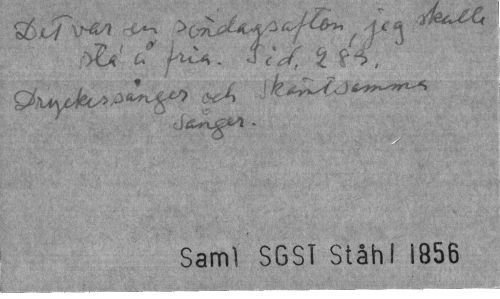 Det var en söndagsafton, jeg skulle
stå å fria. Sid. 289.
Dryckessånger och Skämtsamma
Sånger.
Saml SGST Ståhl 1856